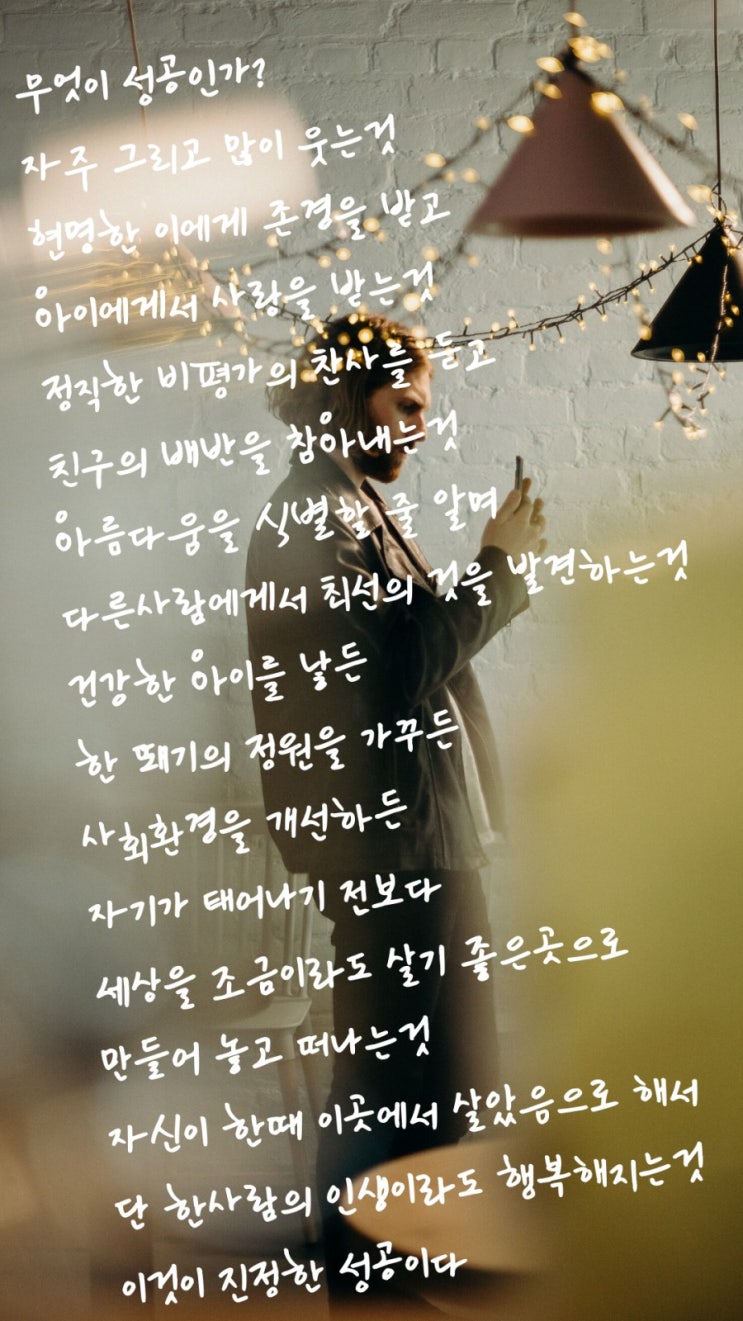 무엇이 성공인가?
자주 그리고 많이 웃는것
현명한 이에게 존경을 받고
아이에게서 사랑을 받는것
정직한 비평가의 찬사를 듣고
친구의 배반을 참아내는것
아름다움을 식별할 줄 알며
다른사람에게서 최선의 것을 발견하는것
건강한 아이를 낳든
한 뙈기의 정원을 가꾸든
사회환경을 개선하든
자기가 태어나기 전보다
세상을 조금이라도 살기 좋은곳으로
만들어 놓고 떠나는것
자신이 한때 이곳에서 살았음으로 해서
단 한사람의 인생이라도 행복해지는것
이것이 진정한 성공이다